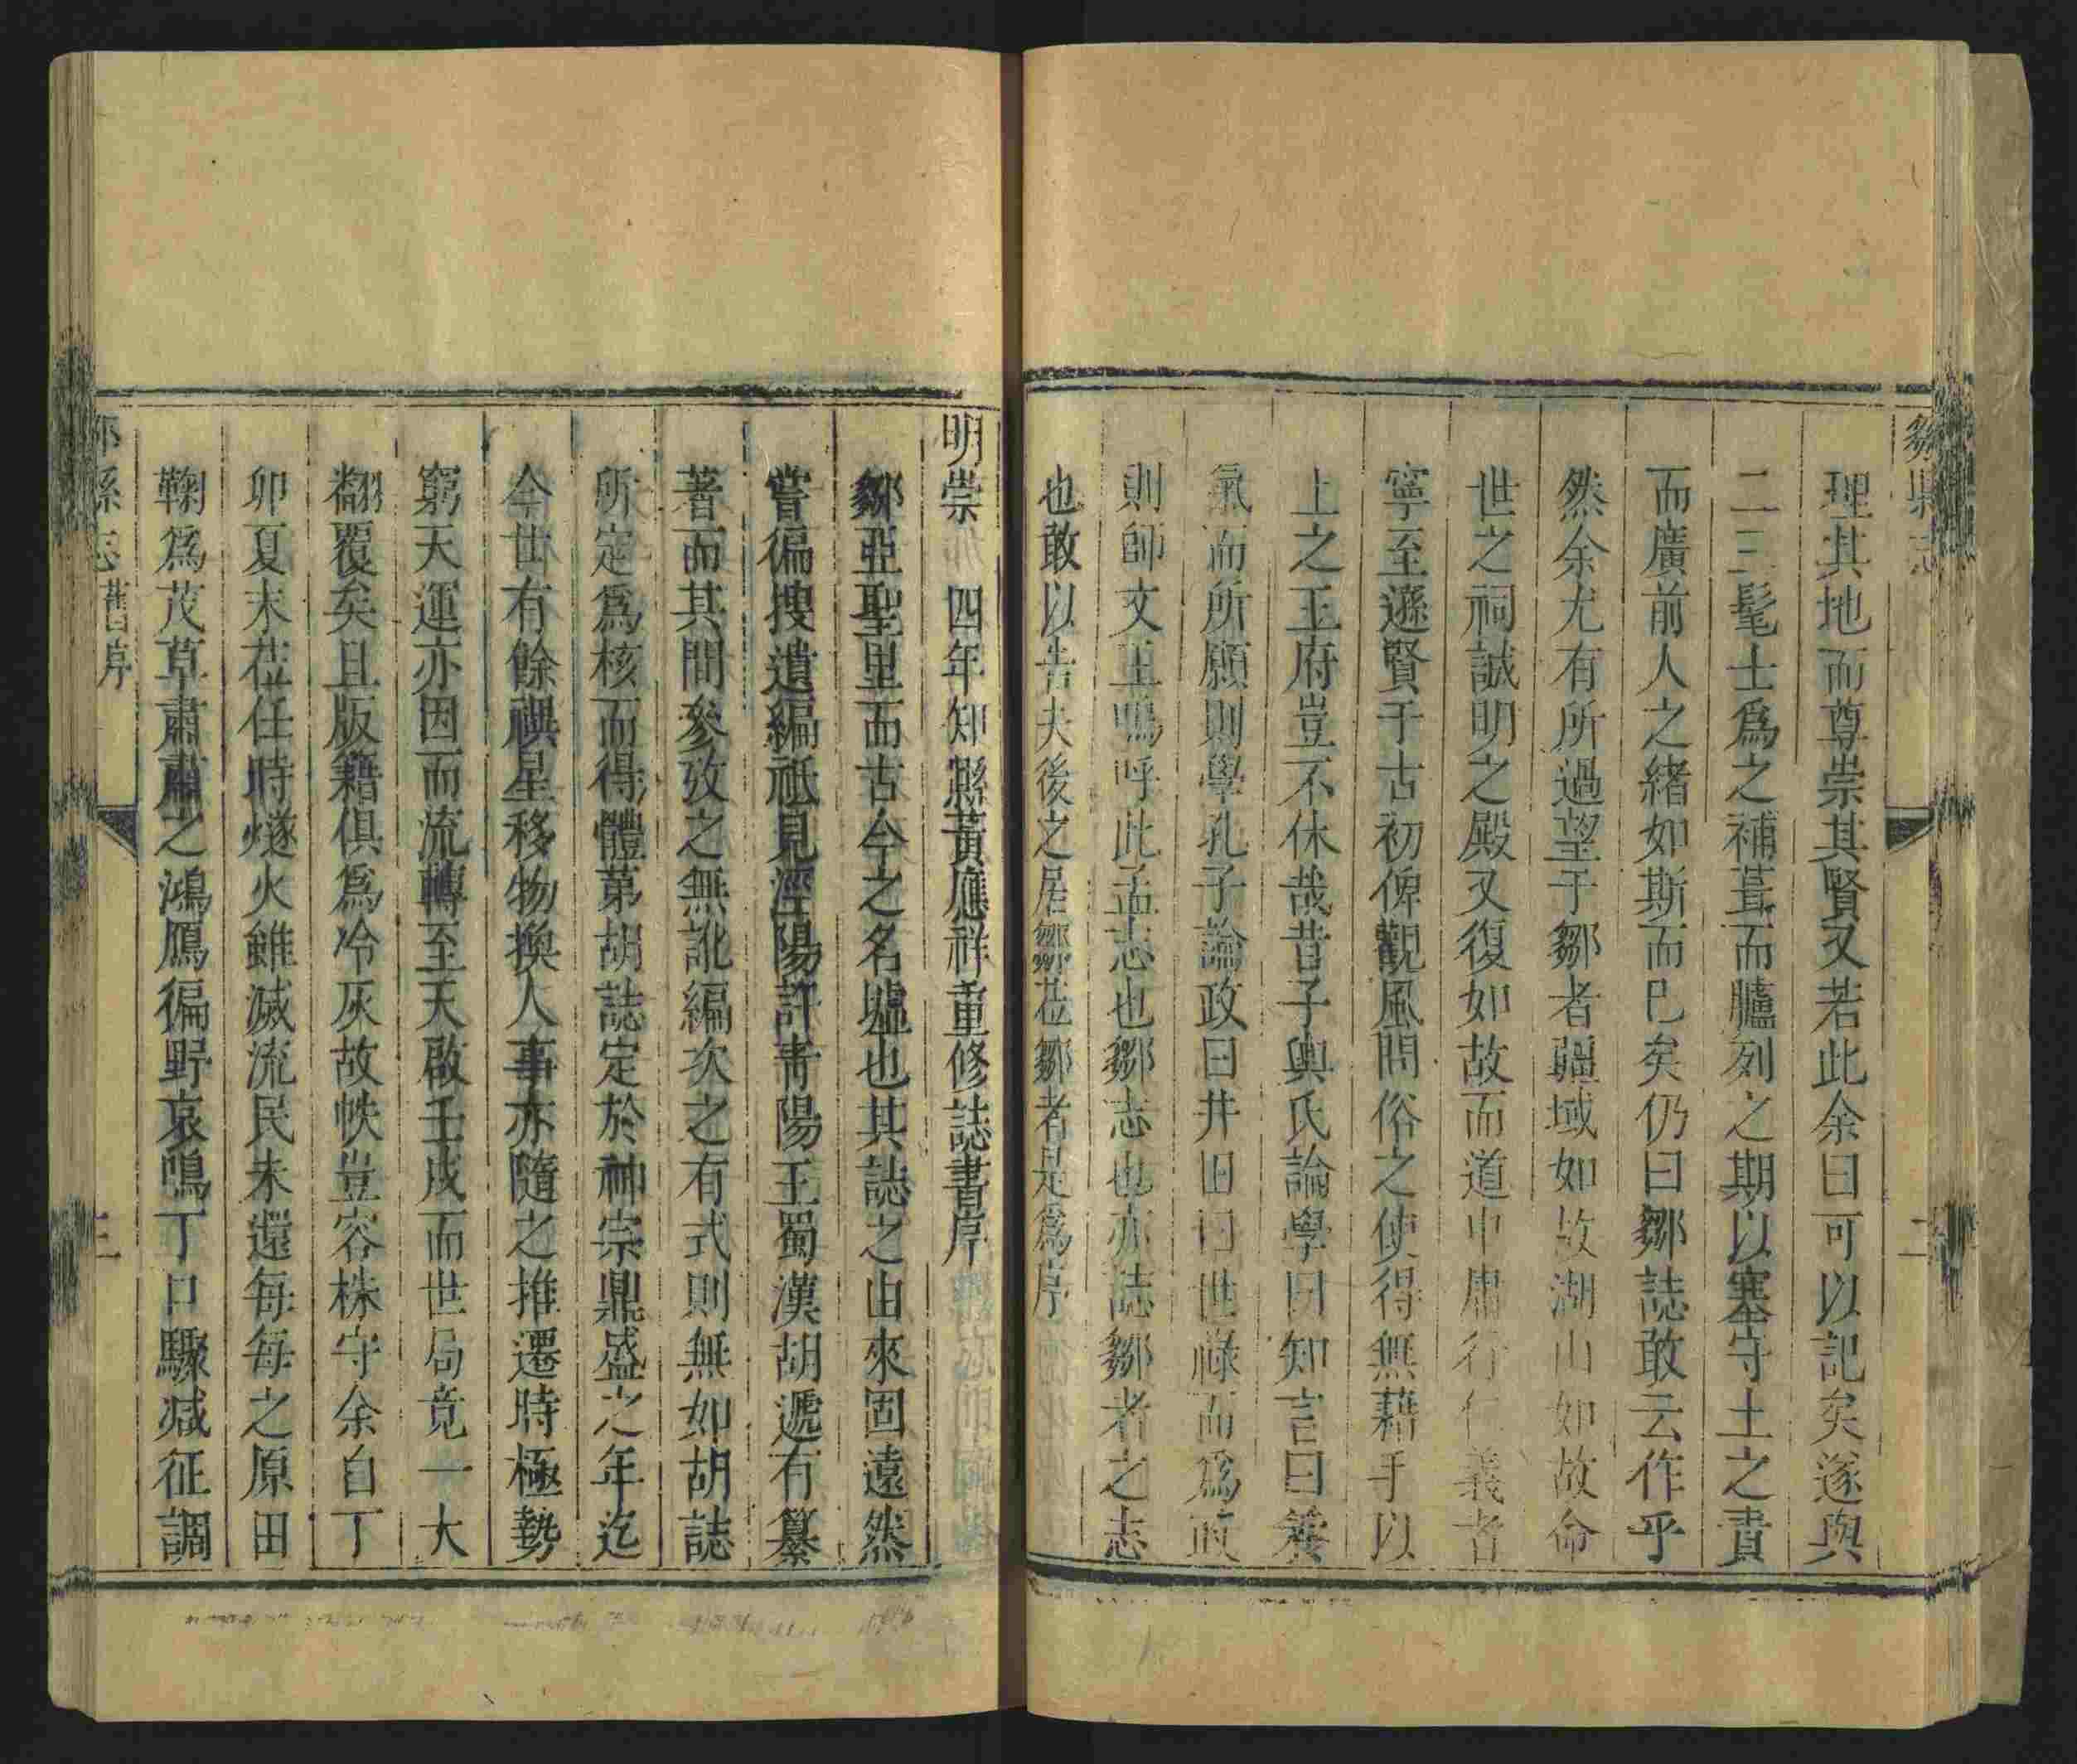 鄒縣志
二
理其地而尊崇其賢又若此余曰可以記矣遂與
二三髦士爲之補葺而臚列之期以塞守土之責
而廣前人之緒如斯而巳矣仍曰鄒誌敢云作乎
然余尤有所過望于鄒者疆域如故湖山如故命
世之祠誠明之殿又復如故而道中庸行仁義者
寧至遜賢于古初俾觀風問俗之使得無藉手以
上之王府豈不休哉昔子輿氏論學曰知言曰養
氣而所願則學孔子論政曰井田曰世祿而爲政
則師文王嗚呼此孟志也鄒志也亦誌鄒者之志
也敢以告夫後之居鄒蒞鄒者是爲序
明崇 四年知縣黃應祥重修誌書序
鄒亞聖里而古今之名墟也其誌之由來固遠然
嘗徧搜遺編祗見涇陽許靑陽王蜀漢胡遞有纂
著而其間參攷之無訛編次之有式則無如胡誌
所定爲核而得體第胡誌定於神宗鼎盛之年迄
今世有餘禩星移物換人事亦隨之推遷時極勢
窮天運亦因而流轉至天啟壬戌而世局竟一大
翻覆矣且版籍俱爲冷灰故帙豈容株守余自丁
卯夏末蒞任時燧火雖滅流民未還每每之原田
鞠爲茂草肅肅之鴻鴈徧野哀鳴丁口驟减征調
鄒縣志舊序
三